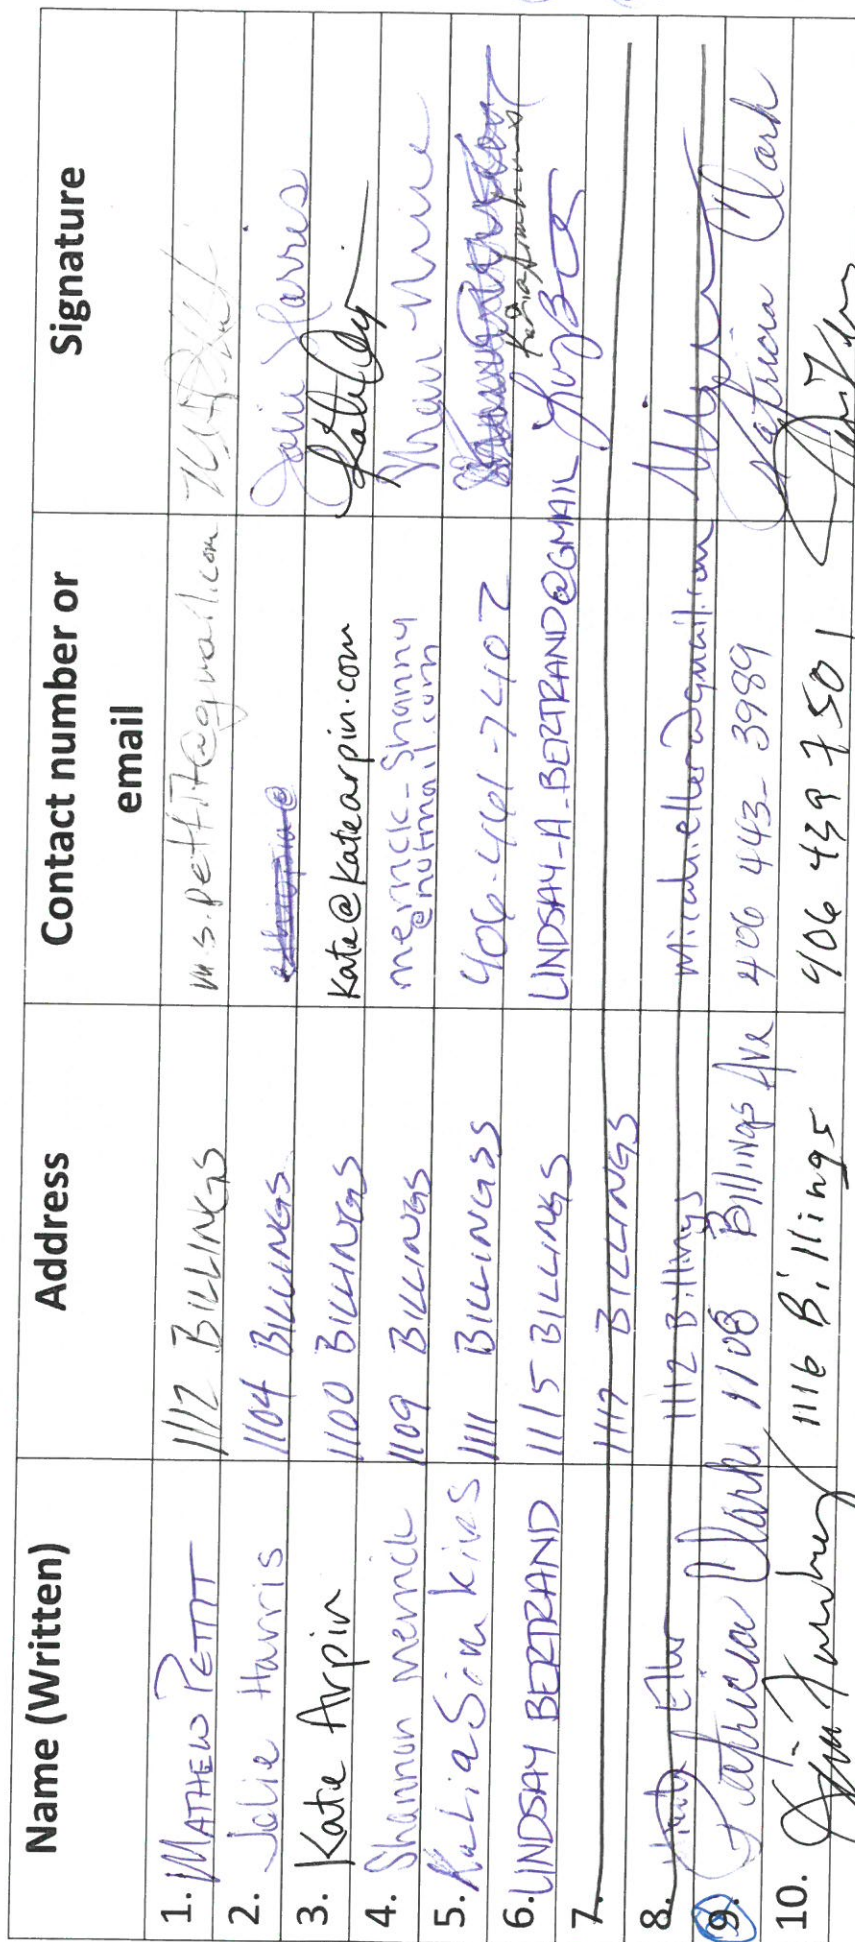 Name (Written) Address Contact number or email Signature
1. MATHEW PETTIT 1112 BILLINGS m.s.pettit@gmail.com
2. Jolie Harris 1104 BILLINGS Jolie Harris
3. Kate Arpin 1100 BILLINGS Kate@katearpin.com
4. Shannon merrick 1109 BILLINGS merrick_shanny@hotmail.com
5. Kalia Simkins 1111 BILLINGSS 406-461-7402
6. LINDSAY BERTRAND 1115 BILLINGS LINDSAY_A_BERTRAND@GMAIL
7. 1117 BILLINGS
8. Eller 1112 Billings micah.eller@gmail.com
9. Patricia Clark 1108 Billings Ave 406 443-3989 Patricia Clark
10. 1116 Billings 406 439 7501